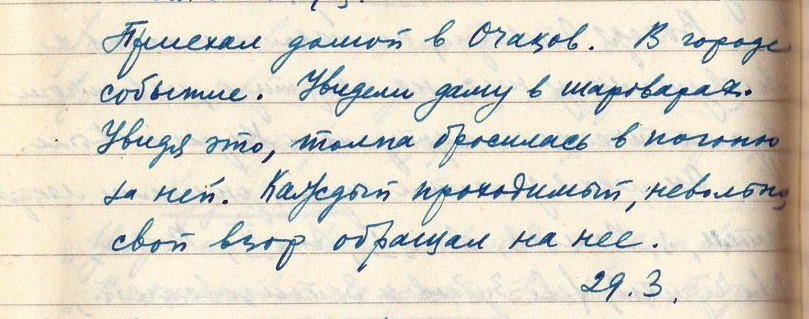 Приехал домой в Очаков. В городе
событие. Увидели даму в шароварах.
Увидя это, толпа бросилась в погоню
за ней. Каждый проходимый, невольно
свой взор обращал на нее.
29.3.